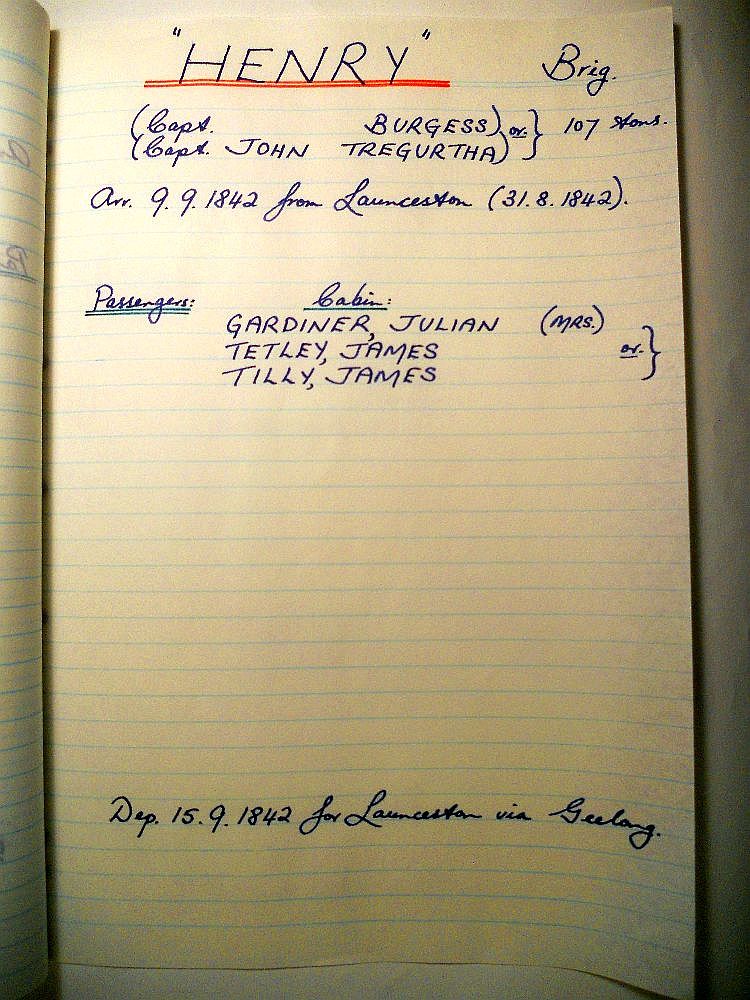 "HENRY" Brig.
(Capt. BURGESS) or } 107 tons.
(Capt. JOHN TREGURTHA)
Arr. 9.9.1842 from Launceston (31.8.1842).
Passengers: Cabin:
GARDINER, JULIAN (MRS.)
TETLEY, JAMES or }
TILLY, JAMES
Dep. 15.9.1842 for Launceston via Geelong.